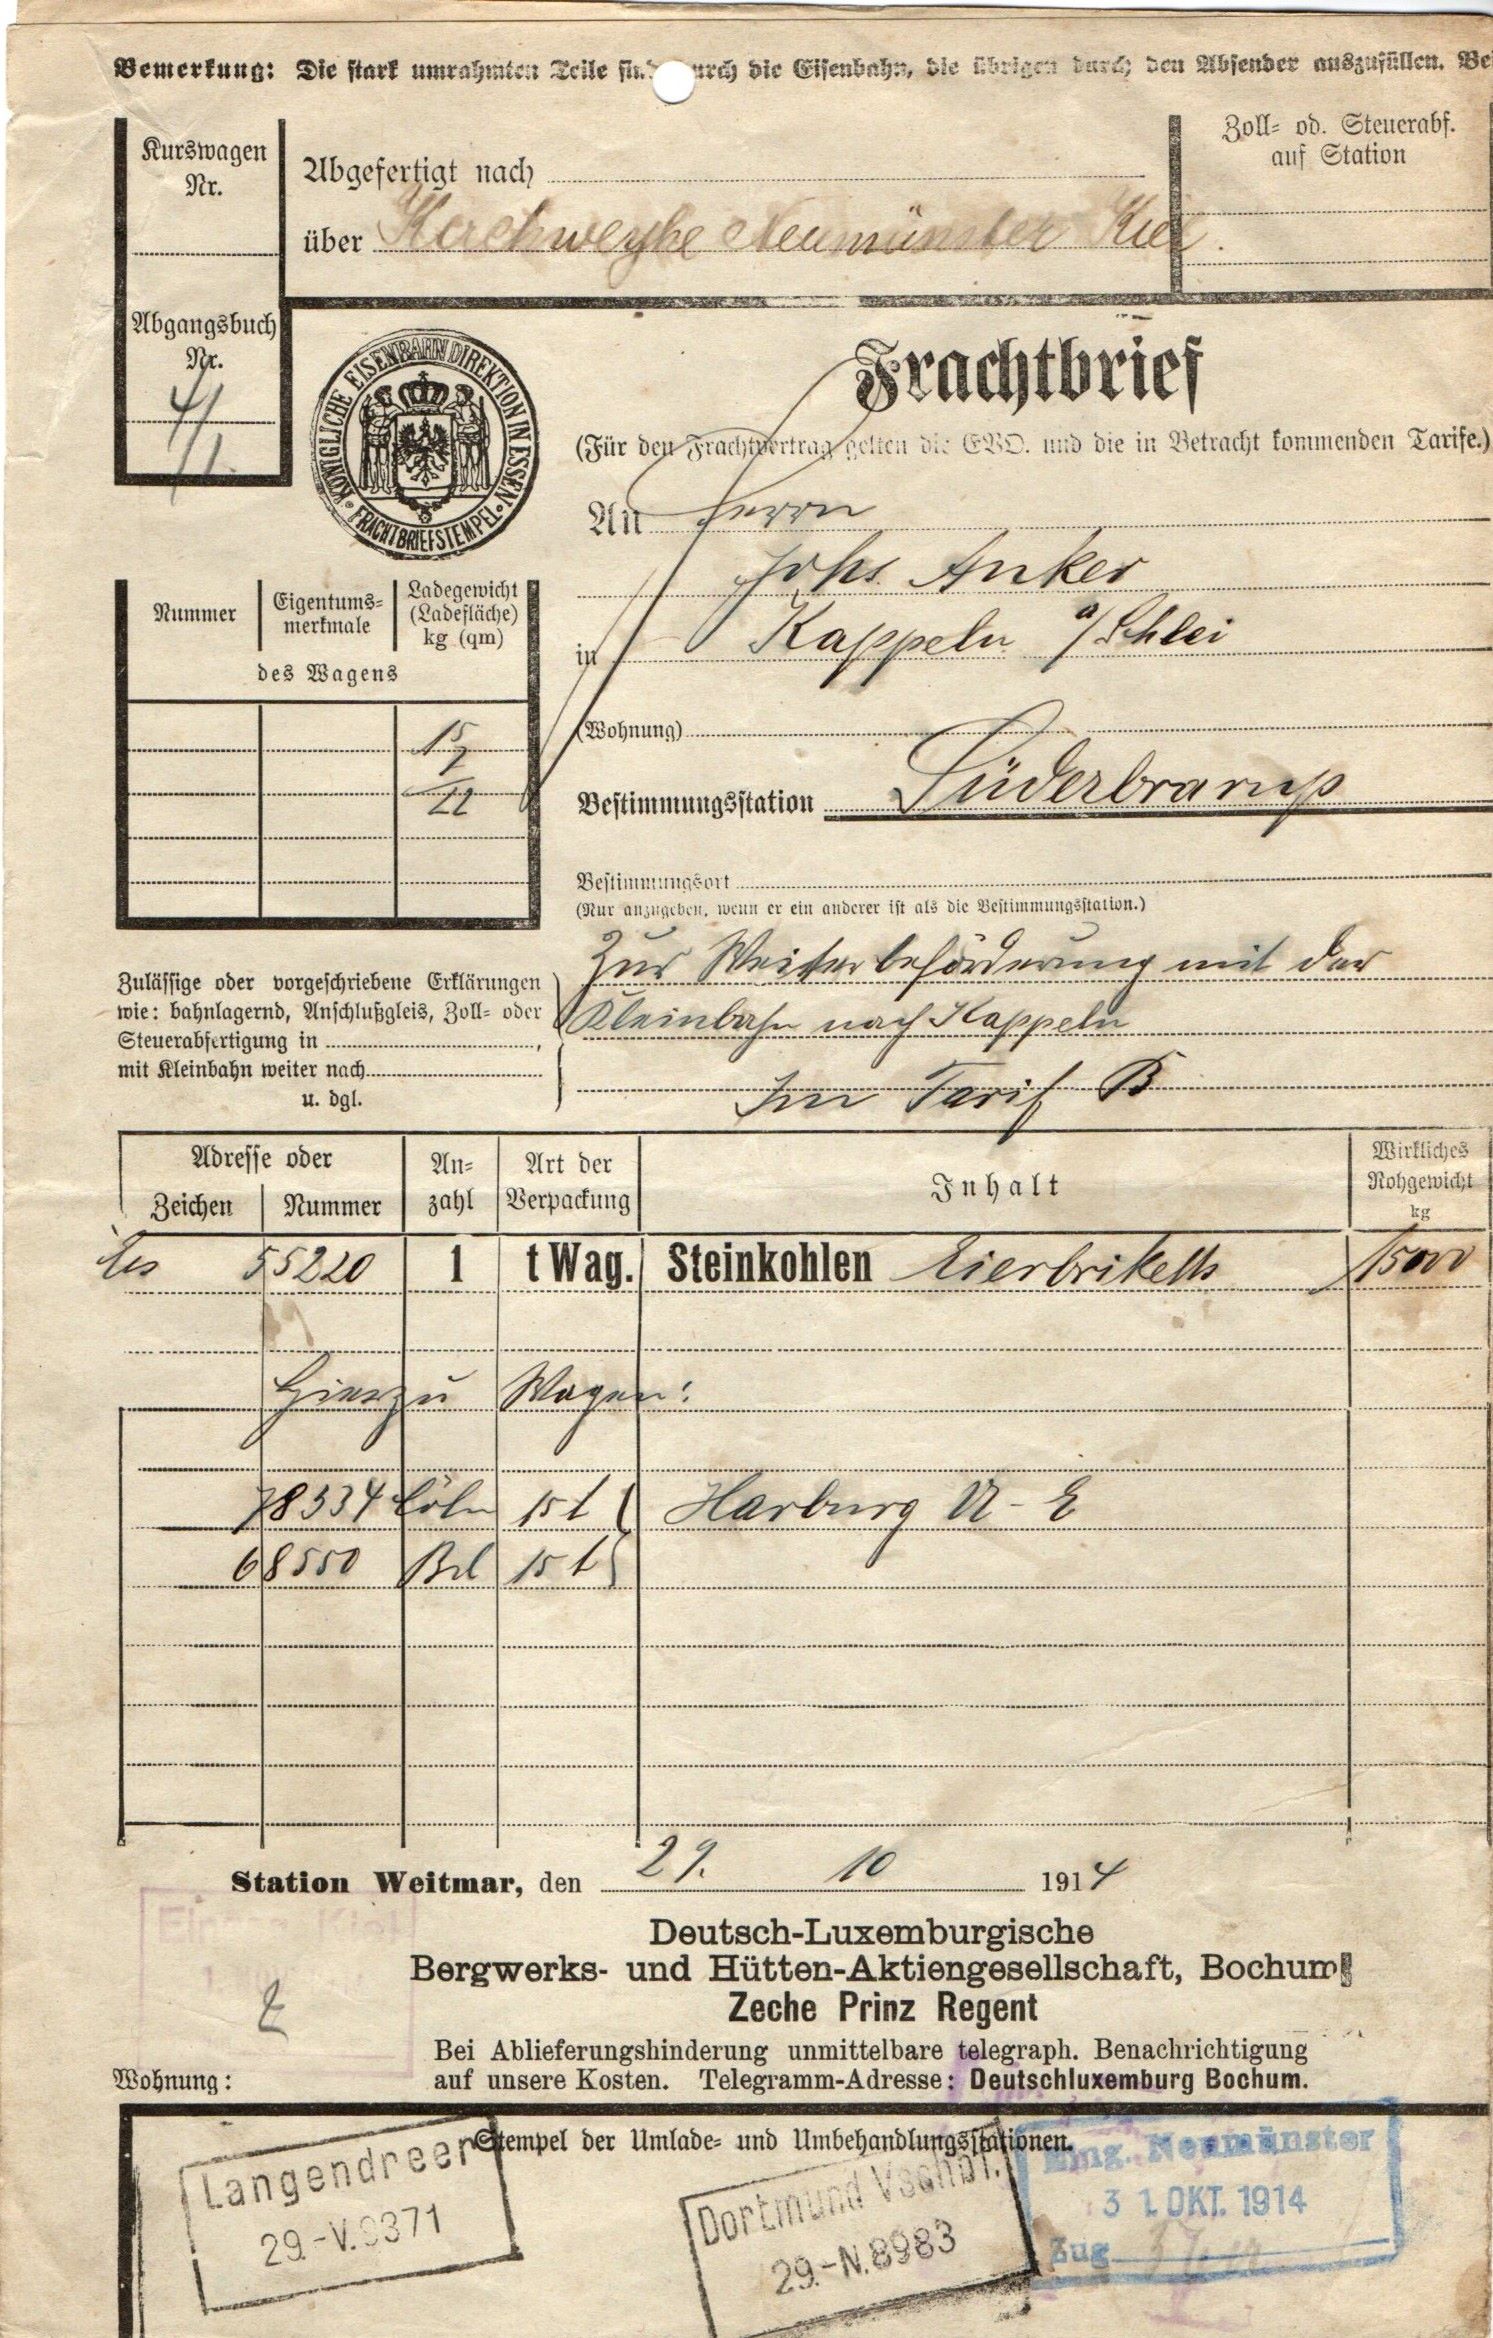 Bemerkung: Die stark umrahmten Teile sind durch die Eisenbahn, die übrigen durch den Absender auszufüllen. Be
Kurswagen
Nr.
Abgefertigt nach
über Kirchweyhe Neumünster Kiel.
Zoll= od. Steuerabf.
auf Station
Abgangsbuch
Nr.
KÖNIGLICHE EISENBAHN DIREKTION IN ESSEN
FRACHTBRIEFSTEMPEL
Frachtbrief
(Für den Frachtvertrag gelten die EVO. und die in Betracht kommenden Tarife.)
An Herrn
Johs. Anker
in Kappeln a/Schlei
(Wohnung)
Bestimmungsstation Süderbrarup
Bestimmungsort
(Nur anzugeben, wenn er ein anderer ist als die Bestimmungsstation.)
Nummer
Eigentums=
merkmale
Ladegewicht
(Ladefläche)
kg (qm)
des Wagens
15
7
22
Zulässige oder vorgeschriebene Erklärungen
wie: bahnlagernd, Anschlußgleis, Zoll= oder
Steuerabfertigung in ,
mit Kleinbahn weiter nach
u. dgl.
Zur Weiterbeförderung mit der
Kleinbahn nach Kappeln
Im Tarif B
Adresse oder
Zeichen Nummer
An=
zahl
Art der
Verpackung
Inhalt
Wirkliches
Rohgewicht
kg
55220 1 t Wag. Steinkohlen Eierbriketts 15000
Hierzu Wagen:
78334 Cöln 15 t Harburg U-E
68550 Brl 15 t
Station Weitmar, den 29. 10 1914
Deutsch-Luxemburgische
Bergwerks- und Hütten-Aktiengesellschaft, Bochum
Zeche Prinz Regent
Bei Ablieferungshinderung unmittelbare telegraph. Benachrichtigung
auf unsere Kosten. Telegramm-Adresse: Deutschluxemburg Bochum.
Wohnung:
Stempel der Umlade= und Umbehandlungsstationen.
Langendreer
29.-V.9371
Dortmund Vschbf.
29.-N.8983
Eing. Neumünster
31. OKT. 1914
Zug